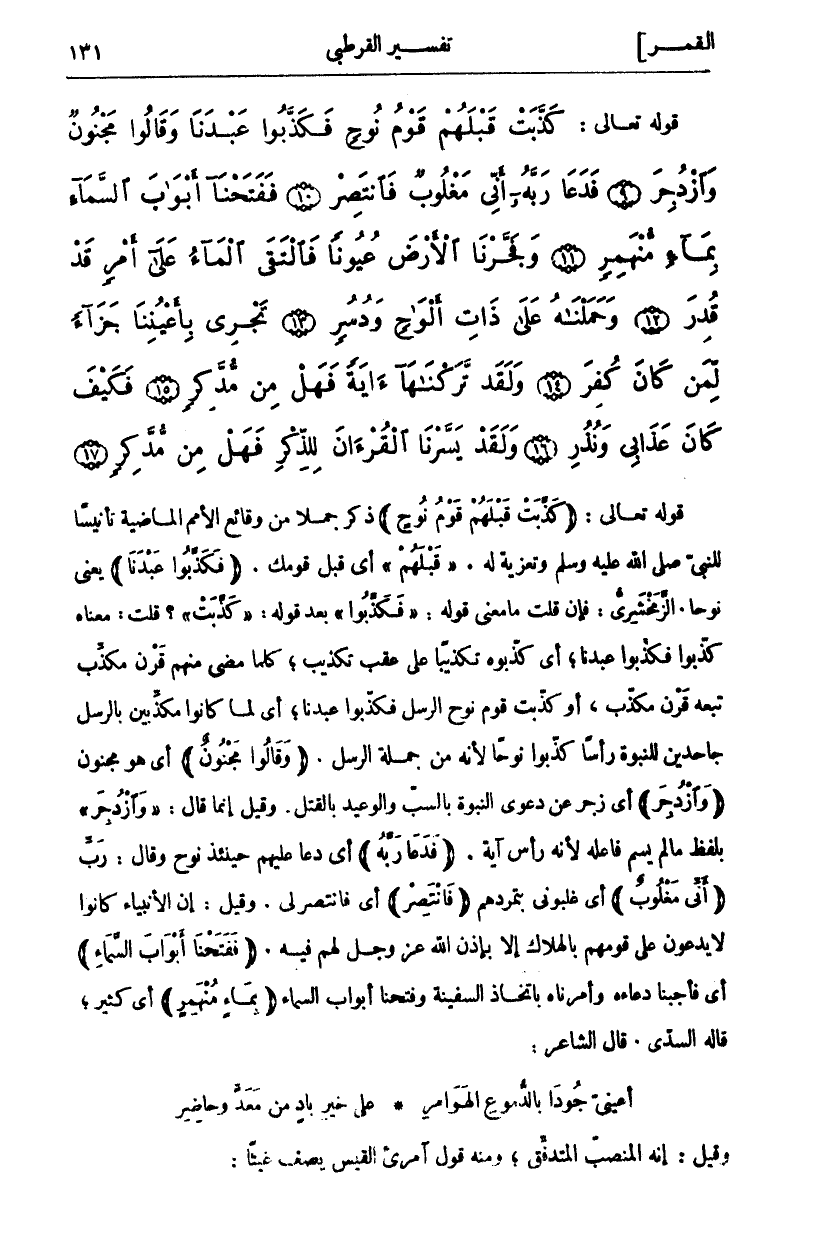 القمـــر] تفســـير القرطبى ١٣١
قوله تعـالى : كَذَّبَتْ قَبْلَهُمْ قَوْمُ نُوحٍ فَكَذَّبُوا عَبْدَنَا وَقَالُوا مَجْنُونٌ
وَٱزْدُجِرَ ﴿٩﴾ فَدَعَا رَبَّهُۥٓ أَنِّى مَغْلُوبٌ فَٱنتَصِرْ ﴿١٠﴾ فَفَتَحْنَآ أَبْوَٰبَ ٱلسَّمَآءِ
بِمَآءٍ مُّنْهَمِرٍ ﴿١١﴾ وَفَجَّرْنَا ٱلْأَرْضَ عُيُونًا فَٱلْتَقَى ٱلْمَآءُ عَلَىٰٓ أَمْرٍ قَدْ
قُدِرَ ﴿١٢﴾ وَحَمَلْنَـٰهُ عَلَىٰ ذَاتِ أَلْوَٰحٍ وَدُسُرٍ ﴿١٣﴾ تَجْرِى بِأَعْيُنِنَا جَزَآءً
لِّمَن كَانَ كُفِرَ ﴿١٤﴾ وَلَقَد تَّرَكْنَـٰهَآ ءَايَةً فَهَلْ مِن مُّدَّكِرٍ ﴿١٥﴾ فَكَيْفَ
كَانَ عَذَابِى وَنُذُرِ ﴿١٦﴾ وَلَقَدْ يَسَّرْنَا ٱلْقُرْءَانَ لِلذِّكْرِ فَهَلْ مِن مُّدَّكِرٍ ﴿١٧﴾
قوله تعـالى : ﴿كَذَّبَتْ قَبْلَهُمْ قَوْمُ نُوحٍ﴾ ذكر جمـلا من وقائع الأمم المـاضية تأنيسًا
للنبىّ صلى الله عليه وسلم وتعزية له . « قَبْلَهُمْ » أى قبل قومك . ﴿فَكَذَّبُوا عَبْدَنَا﴾ يعنى
نوحا . الزَّمَخْشَرِىُّ : فإن قلت مامعنى قوله : « فَكَذَّبُوا » بعد قوله : « كَذَّبَتْ» ؟ قلت : معناه
كذّبوا فكذّبوا عبدنا ؛ أى كذّبوه تكذيبًا على عقب تكذيب ؛ كلما مضى منهم قَرْن مكذّب
تبعه قَرْن مكذّب ، أو كذّبت قوم نوح الرسل فكذّبوا عبدنا ؛ أى لمـا كانوا مكذّبين بالرسل
جاحدين للنبوة رأسًا كذّبوا نوحًا لأنه من جمـلة الرسل . ﴿وَقَالُوا مَجْنُونٌ﴾ أى هو مجنون
﴿وَٱزْدُجِرَ﴾ أى زجر عن دعوى النبوة بالسبّ والوعيد بالقتل . وقيل إنما قال : « وَٱزْدُجِرَ »
بلفظ مالم يسم فاعله لأنه رأس آية . ﴿فَدَعَا رَبَّهُ﴾ أى دعا عليهم حينئذ نوح وقال : رَبِّ
﴿أَنِّى مَغْلُوبٌ﴾ أى غلبونى بتمردهم ﴿فَانْتَصِرْ﴾ أى فانتصر لى . وقيل : إن الأنبياء كانوا
لايدعون على قومهم بالهلاك إلا بإذن الله عز وجـل لهم فيـه . ﴿فَفَتَحْنَا أَبْوَابَ السَّمَاءِ﴾
أى فأجبنا دعاءه وأمرناه باتخـاذ السفينة وفتحنا أبواب السماء ﴿بِمَـاءٍ مُنْهَمِرٍ﴾ أى كثير ؛
قاله السدّى . قال الشاعر :
أَعينىّ جُودَا بالدُّموع الهَوَامرِ * على خير بادٍ من مَعَدٍّ وحاضِرِ
وقيل : إنه المنصبّ المتدفّق ؛ ومنه قول ٱمرئ القيس يصف غيثًا :